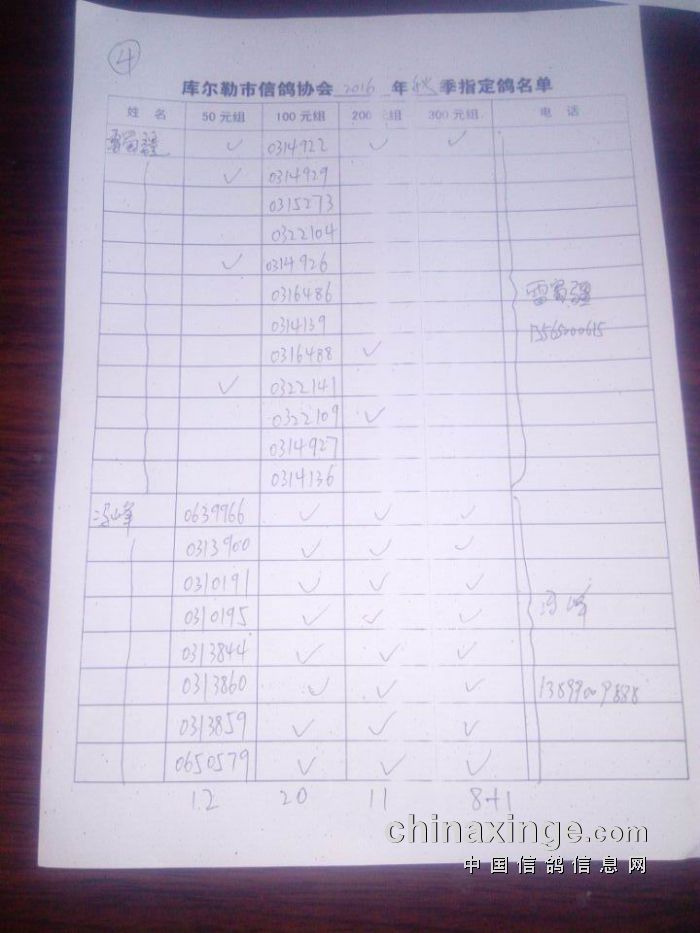 4
库尔勒市信鸽协会 2016 年 秋 季指定鸽名单
姓 名 50元组 100元组 200 元组 300元组 电 话
雷蜀疆 ✓ 0314922 ✓ ✓
✓ 0314929
0315273
0322104
✓ 0314926
0316486 雷蜀疆
0314139
0316488 ✓
✓ 0322141
0322109 ✓
0314927
0314136
冯峰 0639966 ✓ ✓ ✓
0313900 ✓ ✓ ✓
0310191 ✓ ✓ ✓ 冯峰
0310195 ✓ ✓ ✓
0313844 ✓ ✓ ✓
0313860 ✓ ✓ ✓ 13899009888
0313859 ✓ ✓ ✓
0650579 ✓ ✓ ✓
12 20 11 8+1
chinaxinge.com
中国信鸽信息网